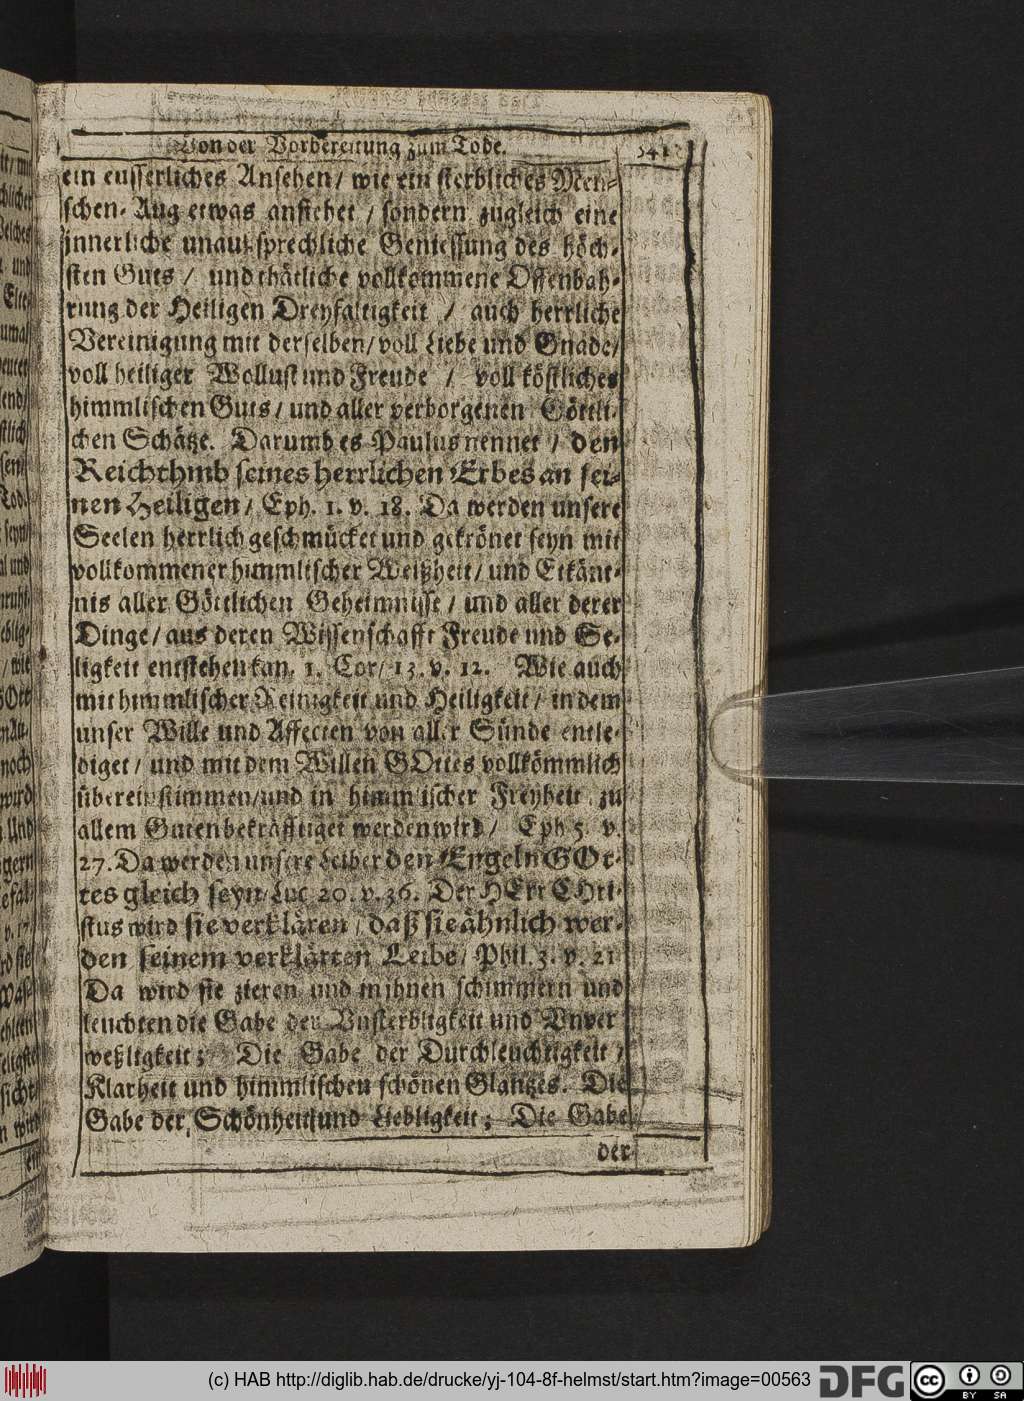 Von der Vorbereitung zum Tode. 541
ein eusserliches Ansehen / wie ein sterbliches Men-
schen-Aug etwas ansiehet / sondern zugleich eine
innerliche unaußsprechliche Geniessung des höch-
sten Guts / und thätliche vollkommene Offenbah-
rung der Heiligen Dreyfaltigkeit / auch herrliche
Vereinigung mit derselben / voll Liebe und Gnade /
voll heiliger Wollust und Freude / voll köstliches
himmlischen Guts / und aller verborgenen Göttli-
chen Schätze. Darumb es Paulus nennet / den
Reichthmb seines herrlichen Erbes an sei-
nen Heiligen / Eph. 1. v. 18. Da werden unsere
Seelen herrlich geschmücket und gekrönet seyn mit
vollkommener himmlischer Weißheit / und Erkänt-
nis aller Göttlichen Geheimnisse / und aller derer
Dinge / aus deren Wissenschafft Freude und Se-
ligkeit entstehen kan. 1. Cor / 13. v. 12. Wie auch
mit himmlischer Reinigkeit und Heiligkeit / in dem
unser Wille und Affecten von aller Sünde entle-
diget / und mit dem Willen GOttes vollkömmlich
übereinstimmen / und in himmlischer Freyheit zu
allem Guten bekräfftiget werden wird / Eph 5. v.
27. Da werden unsere Leiber den Engeln GOt-
tes gleich seyn / Luc 20. v. 36. Der HErr CHri-
stus wird sie verklären / daß sie ähnlich wer-
den seinem verklärten Leibe / Phil. 3. v. 21
Da wird sie zieren und in ihnen schimmern und
leuchten die Gabe der Unsterbligkeit und Unver
weßligkeit; Die Gabe der Durchleuchtigkeit /
Klarheit und himmlischen schönen Glantzes. Die
Gabe der Schönheit und Liebligkeit; Die Gabe
der
(c) HAB http://diglib.hab.de/drucke/yj-104-8f-helmst/start.htm?image=00563
DFG
cc BY SA